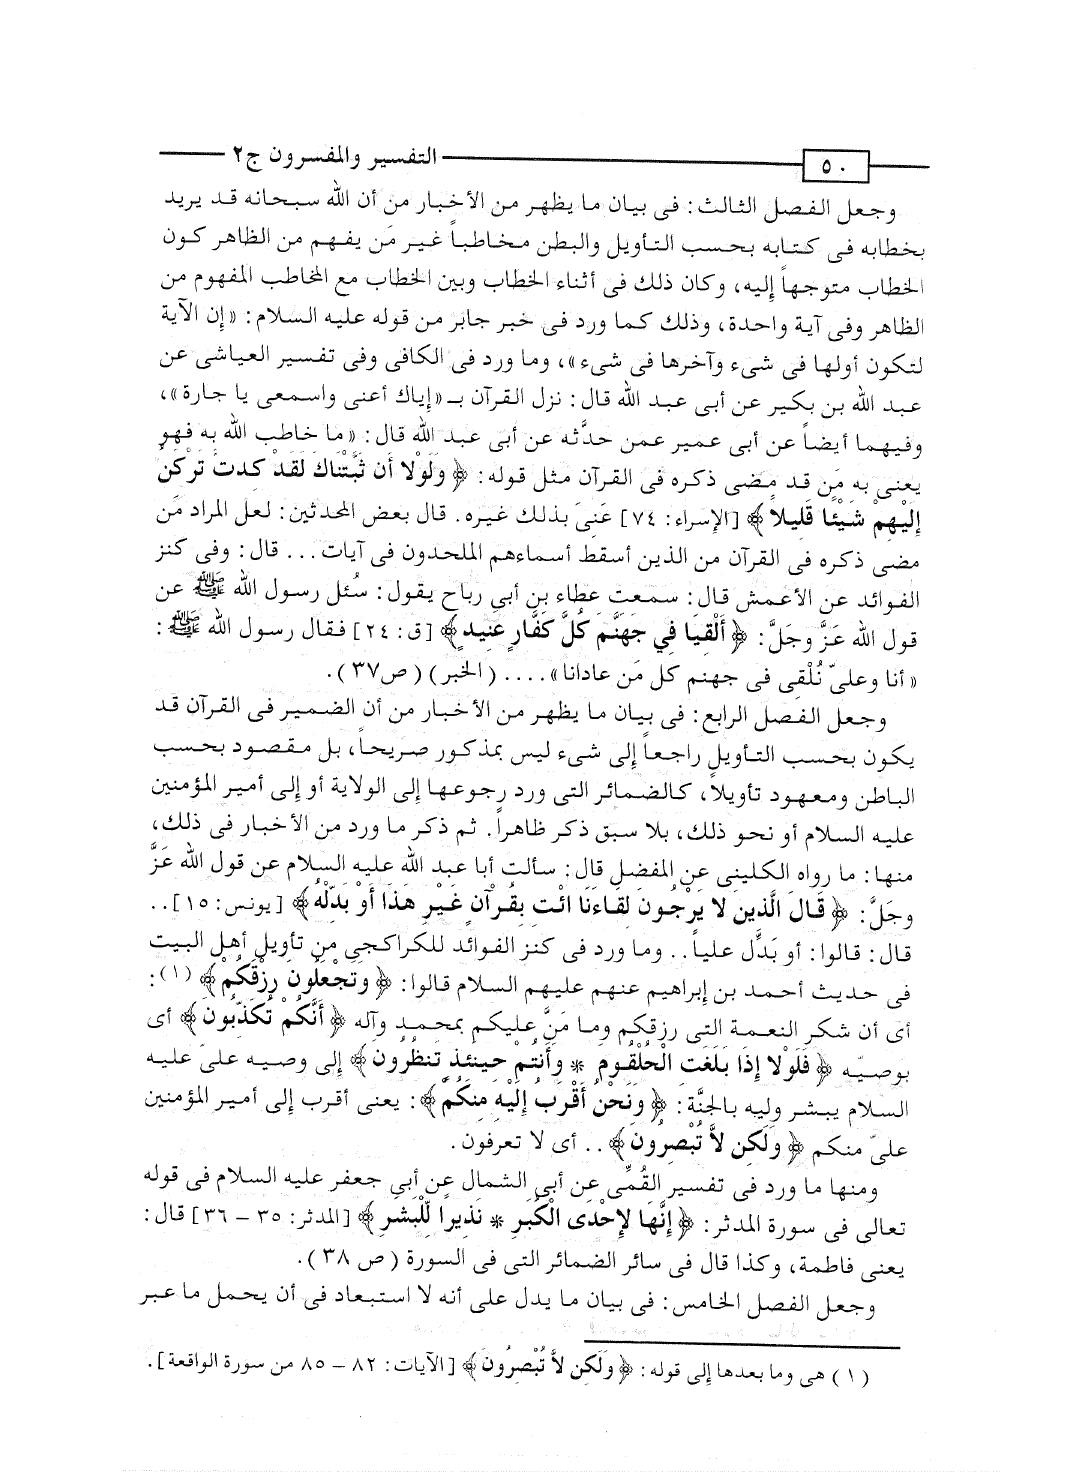 ٥٠ التفسير والمفسرون ج٢
وجعل الفصل الثالث: فى بيان ما يظهر من الأخبار من أن الله سبحانه قد يريد
بخطابه فى كتابه بحسب التأويل والبطن مخاطباً غير مَن يفهم من الظاهر كون
الخطاب متوجهاً إليه، وكان ذلك فى أثناء الخطاب وبين الخطاب مع المخاطب المفهوم من
الظاهر وفى آية واحدة، وذلك كما ورد فى خبر جابر من قوله عليه السلام: «إن الآية
لتكون أولها فى شىء وآخرها فى شىء»، وما ورد فى الكافى وفى تفسير العياشى عن
عبد الله بن بكير عن أبى عبد الله قال: نزل القرآن بـ «إياك أعنى واسمعى يا جارة»،
وفيهما أيضاً عن أبى عمير عمن حدَّثه عن أبى عبد الله قال: «ما خاطب الله به فهو
يعنى به مَن قد مضى ذكره فى القرآن مثل قوله: ﴿وَلَوْلا أَن ثَبَّتْنَاكَ لَقَدْ كِدتَّ تَرْكَنُ
إِلَيْهِمْ شَيْئًا قَلِيلاً﴾ [الإسراء: ٧٤] عَنىَ بذلك غيره. قال بعض المحدثين: لعل المراد مَن
مضى ذكره فى القرآن من الذين أسقط أسماءهم الملحدون فى آيات... قال: وفى كنز
الفوائد عن الأعمش قال: سمعت عطاء بن أبى رباح يقول: سُئل رسول الله ﷺ عن
قول الله عَزَّ وجَلَّ: ﴿أَلْقِيَا فِي جَهَنَّمَ كُلَّ كَفَّارٍ عَنِيدٍ﴾ [ق: ٢٤] فقال رسول الله ﷺ:
«أنا وعلىّ نُلْقِى فى جهنم كل مَن عادانا».... (الخبر) (ص٣٧).
وجعل الفصل الرابع: فى بيان ما يظهر من الأخبار من أن الضمير فى القرآن قد
يكون بحسب التأويل راجعاً إلى شىء ليس بمذكور صريحاً، بل مقصود بحسب
الباطن ومعهود تأويلاً، كالضمائر التى ورد رجوعها إلى الولاية أو إلى أمير المؤمنين
عليه السلام أو نحو ذلك، بلا سبق ذكر ظاهراً. ثم ذكر ما ورد من الأخبار فى ذلك،
منها: ما رواه الكلينى عن المفضل قال: سألت أبا عبد الله عليه السلام عن قول الله عَزَّ
وجَلَّ: ﴿قَالَ الَّذِينَ لا يَرْجُونَ لِقَاءَنَا ائْتِ بِقُرْآنٍ غَيْرِ هَذَا أَوْ بَدِّلْهُ﴾ [يونس: ١٥]..
قال: قالوا: أو بَدِّل علياً.. وما ورد فى كنز الفوائد للكراكجى من تأويل أهل البيت
فى حديث أحمد بن إبراهيم عنهم عليهم السلام قالوا: ﴿وَتَجْعَلُونَ رِزْقَكُمْ﴾ (١):
أى أن شكر النعمة التى رزقكم وما مَنَّ عليكم بمحمد وآله ﴿أَنَّكُمْ تُكَذِّبُونَ﴾ أى
بوصيّه ﴿فَلَوْلا إِذَا بَلَغَتِ الْحُلْقُومَ * وَأَنتُمْ حِينَئِذٍ تَنظُرُونَ﴾ إلى وصيه علىّ عليه
السلام يبشر وليه بالجنَّة: ﴿وَنَحْنُ أَقْرَبُ إِلَيْهِ مِنكُمْ﴾: يعنى أقرب إلى أمير المؤمنين
علىّ منكم ﴿وَلَكِن لاَّ تُبْصِرُونَ﴾.. أى لا تعرفون.
ومنها ما ورد فى تفسير القُمِّى عن أبى الشمال عن أبى جعفر عليه السلام فى قوله
تعالى فى سورة المدثر: ﴿إِنَّهَا لإِحْدَى الْكُبَرِ * نَذِيرًا لِّلْبَشَرِ﴾ [المدثر: ٣٥ – ٣٦] قال:
يعنى فاطمة، وكذا قال فى سائر الضمائر التى فى السورة (ص ٣٨).
وجعل الفصل الخامس: فى بيان ما يدل على أنه لا استبعاد فى أن يحمل ما عبر
(١) هى وما بعدها إلى قوله: ﴿وَلَكِن لاَّ تُبْصِرُونَ﴾ [الآيات: ٨٢ – ٨٥ من سورة الواقعة].